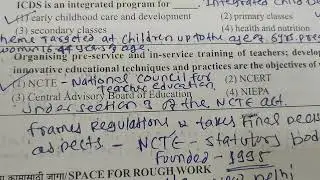 ICDS is an integrated program for
(1) early childhood care and development (2) primary classes
(3) secondary classes (4) health and nutrition
scheme targeted at children up to the age of 6 yrs, preg
women 16-44 years of age.
Organising pre-service and in-service training of teachers; develop
innovative educational techniques and practices are the objectives of
(1) NCTE - National Council for (2) NCERT
teacher education
(3) Central Advisory Board of Education (4) NIEPA
Under section 3 of the NCTE act.
Frames Regulations & takes final decis
aspects - NCTE - statutory bod
founded - 1995
कामासाठी जागा/SPACE FOR ROUGH WORK
new Delhi